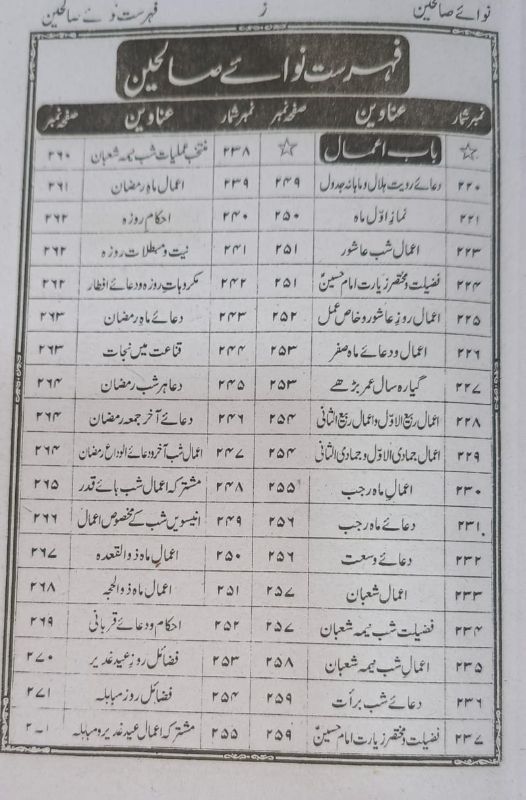 نوائے صالحین ز فہرست نوائے صالحین
فہرست نوائے صالحین
نمبر شمار عناوین صفحہ نمبر نمبر شمار عناوین صفحہ نمبر
☆ باب اعمال ☆ ۲۳۸ منتخب عملیات شب نیمہ شعبان ۲۶۰
۲۲۰ دعائے رویت ہلال و ماہانہ جدول ۲۴۹ ۲۳۹ اعمال ماہ رمضان ۲۶۱
۲۲۱ نماز اوّل ماہ ۲۵۰ ۲۴۰ احکام روزہ ۲۶۲
۲۲۳ اعمال شب عاشور ۲۵۱ ۲۴۱ نیت و مبطلات روزہ ۲۶۲
۲۲۴ فضیلت و مختصر زیارت امام حسینؑ ۲۵۱ ۲۴۲ مکروہات روزہ و دعائے افطار ۲۶۲
۲۲۵ اعمال روز عاشور و خاص عمل ۲۵۲ ۲۴۳ دعائے ماہ رمضان ۲۶۳
۲۲۶ اعمال و دعائے ماہ صفر ۲۵۳ ۲۴۴ قناعت میں نجات ۲۶۳
۲۲۷ گیارہ سال عمر بڑھے ۲۵۳ ۲۴۵ دعا ہر شب رمضان ۲۶۴
۲۲۸ اعمال ربیع الاوّل و اعمال ربیع الثانی ۲۵۴ ۲۴۶ دعائے آخر جمعہ رمضان ۲۶۴
۲۲۹ اعمال جمادی الاوّل و جمادی الثانی ۲۵۴ ۲۴۷ اعمال شب آخر و دعائے الوداع رمضان ۲۶۴
۲۳۰ اعمال ماہ رجب ۲۵۵ ۲۴۸ مشترکہ اعمال شب ہائے قدر ۲۶۵
۲۳۱ دعائے ماہ رجب ۲۵۶ ۲۴۹ انیسویں شب کے مخصوص اعمال ۲۶۶
۲۳۲ دعائے وسعت ۲۵۶ ۲۵۰ اعمال ماہ ذوالقعدہ ۲۶۷
۲۳۳ اعمال شعبان ۲۵۷ ۲۵۱ اعمال ماہ ذوالحجہ ۲۶۸
۲۳۴ فضیلت شب نیمہ شعبان ۲۵۷ ۲۵۲ احکام و دعائے قربانی ۲۶۹
۲۳۵ اعمال شب نیمہ شعبان ۲۵۸ ۲۵۳ فضائل روز عید غدیر ۲۷۰
۲۳۶ دعائے شب برأت ۲۵۹ ۲۵۴ فضائل روز مباہلہ ۲۷۱
۲۳۷ فضیلت و مختصر زیارت امام حسینؑ ۲۵۹ ۲۵۵ مشترکہ اعمال عید غدیر و مباہلہ